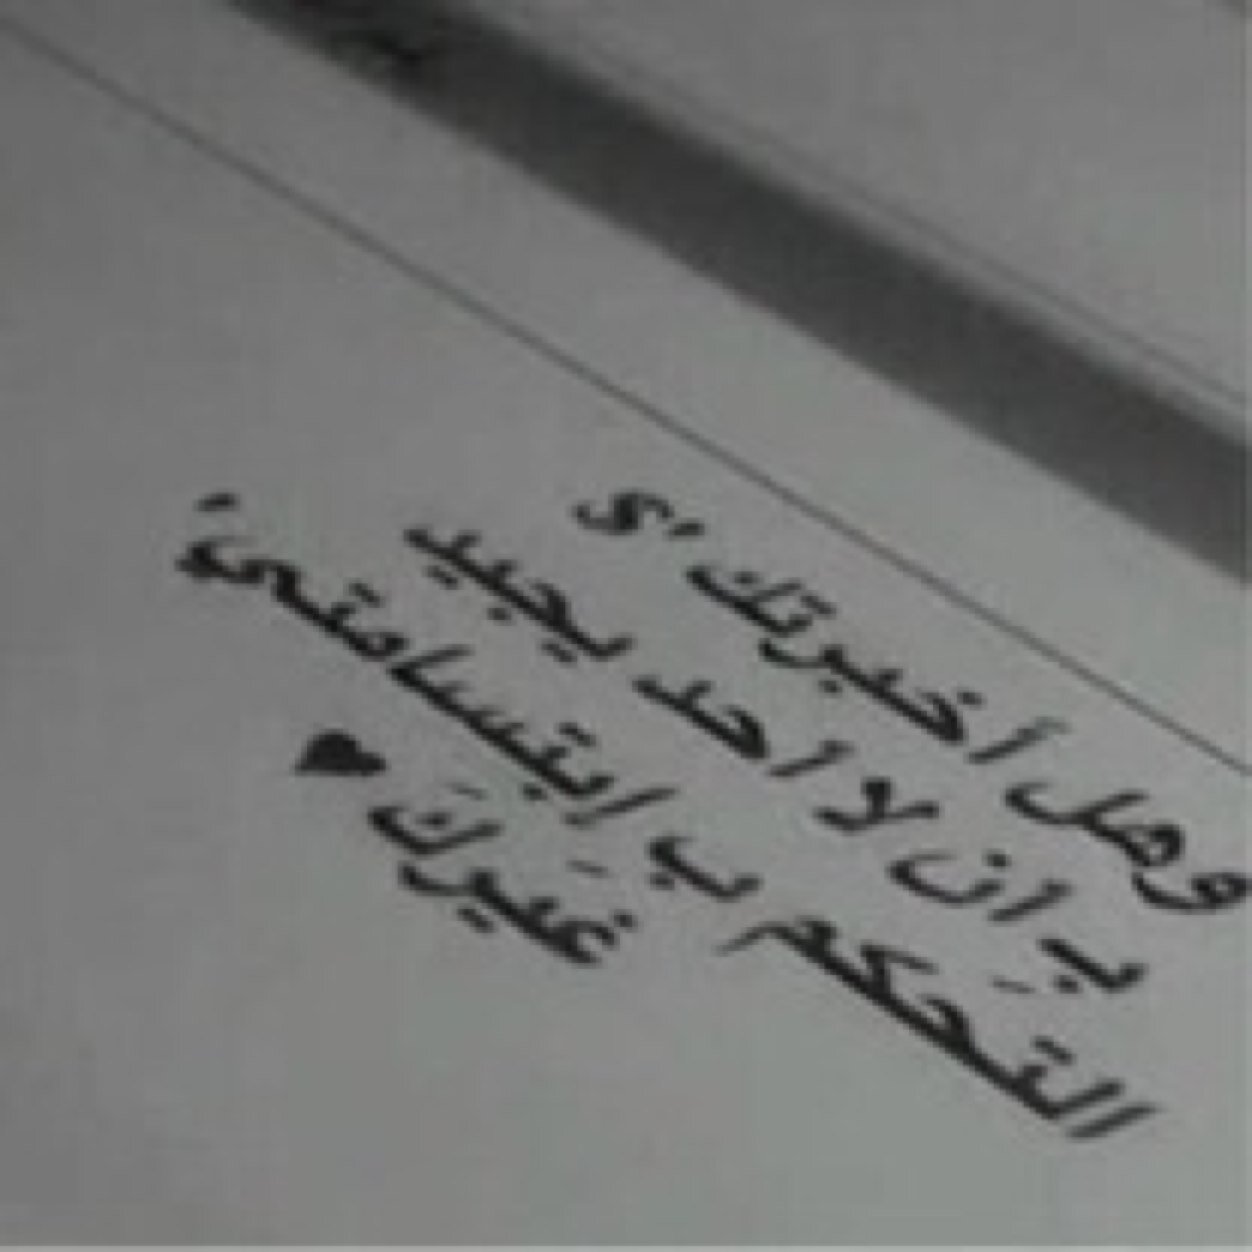 وهل أخبرتك 'ى
ب ان لا احد يجيد
التَحكم ب إبتسامتيَ
غَيركَ ♥